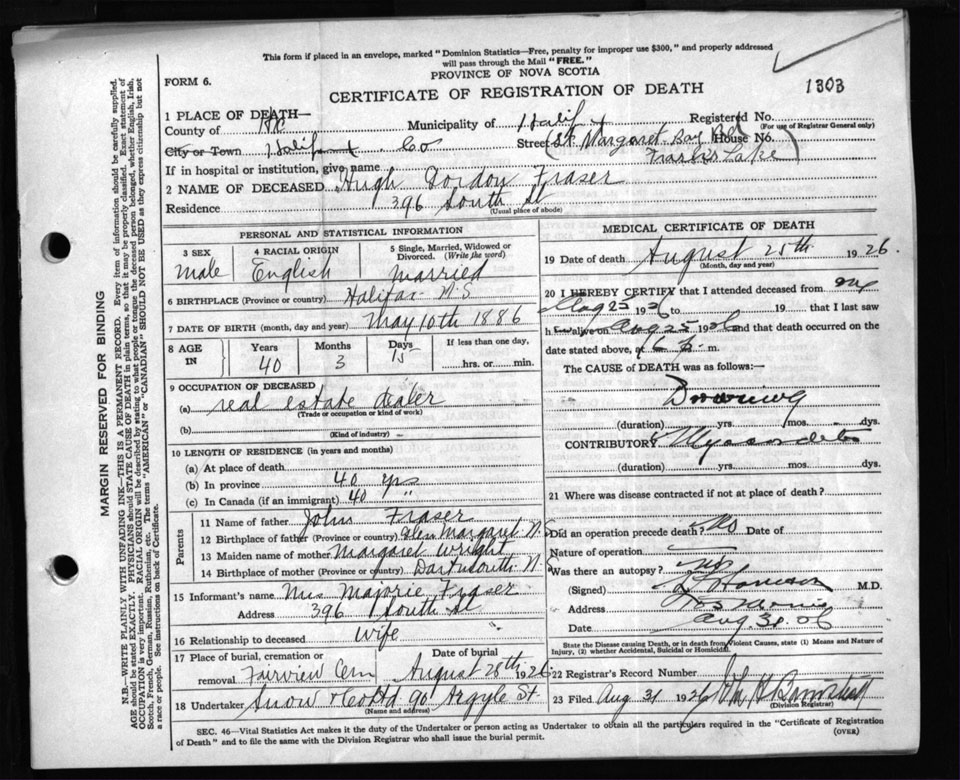 This form if placed in an envelope, marked "Dominion Statistics—Free, penalty for improper use $300," and properly addressed
will pass through the Mail "FREE."
FORM 6.
PROVINCE OF NOVA SCOTIA
CERTIFICATE OF REGISTRATION OF DEATH
1303
1 PLACE OF DEATH—
County of Hfx Municipality of Halifax Registered No.
(For use of Registrar General only)
City or Town Halifax Co Street (St Margaret Bay Rd House No.
Lake)
If in hospital or institution, give name
2 NAME OF DECEASED Hugh Gordon Fraser
Residence 396 South St
(Usual place of abode)
PERSONAL AND STATISTICAL INFORMATION
3 SEX male
4 RACIAL ORIGIN English
5 Single, Married, Widowed or Divorced. (Write the word) married
6 BIRTHPLACE (Province or country) Halifax N.S
7 DATE OF BIRTH (month, day and year) May 10th 1886
8 AGE IN Years 40 Months 3 Days 15 If less than one day, hrs. or min.
9 OCCUPATION OF DECEASED
(a) real estate dealer
(Trade or occupation or kind of work)
(b)
(Kind of industry)
10 LENGTH OF RESIDENCE (in years and months)
(a) At place of death
(b) In province 40 yrs
(c) In Canada (if an immigrant) 40 "
Parents
11 Name of father John Fraser
12 Birthplace of father (Province or country) Glen Margaret N.S
13 Maiden name of mother Margaret Wright
14 Birthplace of mother (Province or country) Dartmouth N.
15 Informant's name Mrs Majorie Fraser
Address 396 South St
16 Relationship to deceased wife
17 Place of burial, cremation or removal Fairview Cem
Date of burial August 28th 1926
18 Undertaker Snow & Co Ltd 90 Argyle St.
(Name and address)
MEDICAL CERTIFICATE OF DEATH
19 Date of death August 25th 1926.
(Month, day and year)
20 I HEREBY CERTIFY that I attended deceased from
Aug 25 26 to 19 that I last saw
h alive on Aug 25 1926 and that death occurred on the
date stated above, at 6 p. m.
The CAUSE of DEATH was as follows:—
Drowning
(duration) yrs. mos. dys.
CONTRIBUTORY
(duration) yrs. mos. dys.
21 Where was disease contracted if not at place of death?
Did an operation precede death? No Date of
Nature of operation
Was there an autopsy? No
(Signed) M.D.
Address
Date Aug. 31. 26
State the Disease causing Death, or in death from Violent Causes, state (1) Means and Nature of
Injury, (2) whether Accidental, Suicidal or Homicidal.
22 Registrar's Record Number
23 Filed Aug 31 1926
(Division Registrar)
SEC. 46—Vital Statistics Act makes it the duty of the Undertaker or person acting as Undertaker to obtain all the particulars required in the "Certificate of Registration
of Death" and to file the same with the Division Registrar who shall issue the burial permit.
(OVER)
MARGIN RESERVED FOR BINDING
N.B.—WRITE PLAINLY WITH UNFADING INK—THIS IS A PERMANENT RECORD. Every item of information should be carefully supplied.
AGE should be stated EXACTLY. PHYSICIANS should STATE CAUSE OF DEATH in plain terms, so that it may be properly classified. Exact statement of
OCCUPATION is very important. RACIAL ORIGIN will be described by stating to what people or tongue the deceased person belonged, whether English, Irish,
Scotch, French, German, Russian, Ruthenian, etc. The terms "AMERICAN" or "CANADIAN" SHOULD NOT BE USED as they express citizenship but not
a race or people. See instructions on back of Certificate.